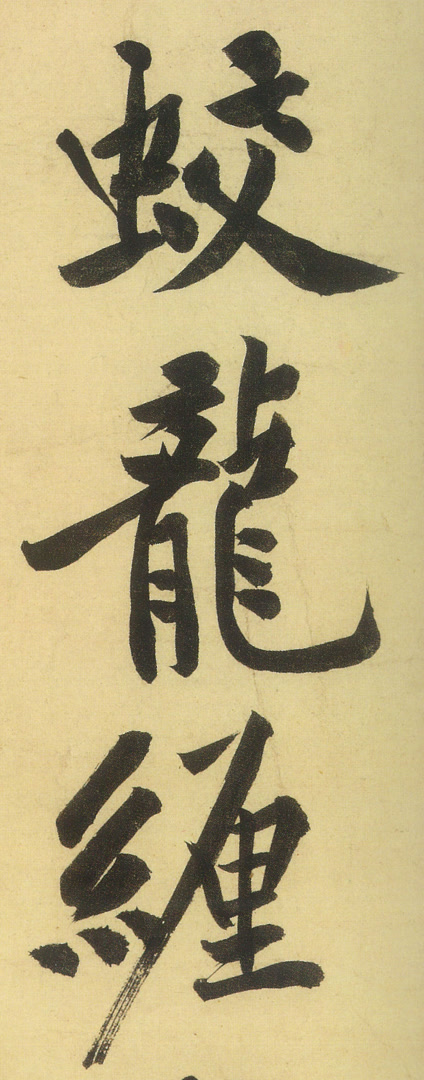 蛟龍纏